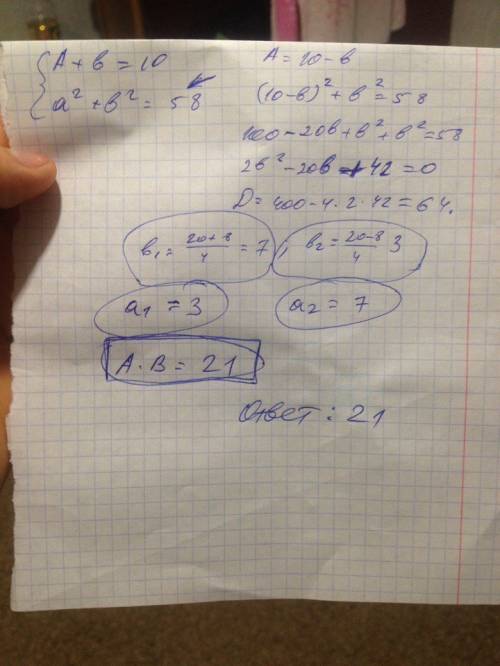 { A + в = 10
a² + в² = 58
A = 10 - в
(10-в)² + в² = 58
100 - 20в + в² + в² = 58
2в² - 20в + 42 = 0
D = 400 - 4 · 2 · 42 = 64.
в₁ = \frac{20+8}{4} = 7 ; в₂ = \frac{20-8}{4} 3
a₁ = 3 a₂ = 7
A · B = 21
Ответ : 21